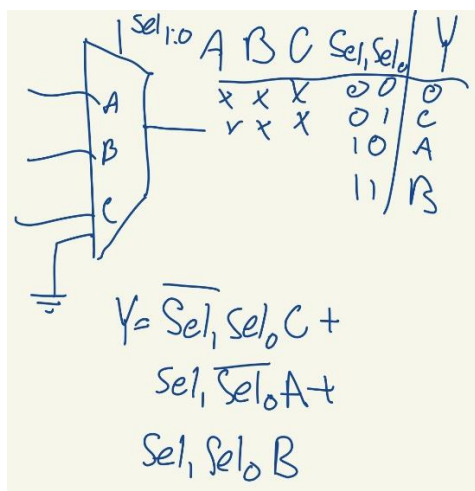 Sel1:0
A B C Sel1 Sel0 Y
A x x x 0 0 0
x x x 0 1 C
B 1 0 A
C 1 1 B
Y= \overline{Sel1} Sel0 C +
Sel1 \overline{Sel0} A +
Sel1 Sel0 B